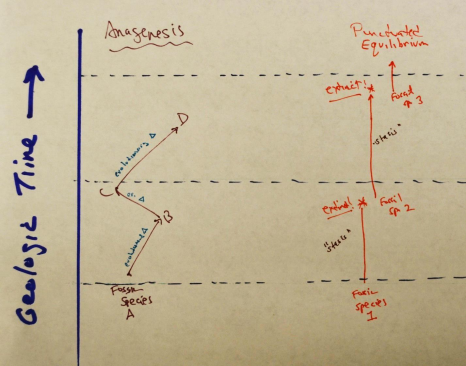 Geologic Time
Anagenesis
D
evolutionary Δ
C
ev. Δ
B
evolutionary Δ
Fossil
Species
A
Punctuated
Equilibrium
extinct!
Fossil
sp 3
"stasis"
extinct!
Fossil
sp 2
"stasis"
Fossil
species
1